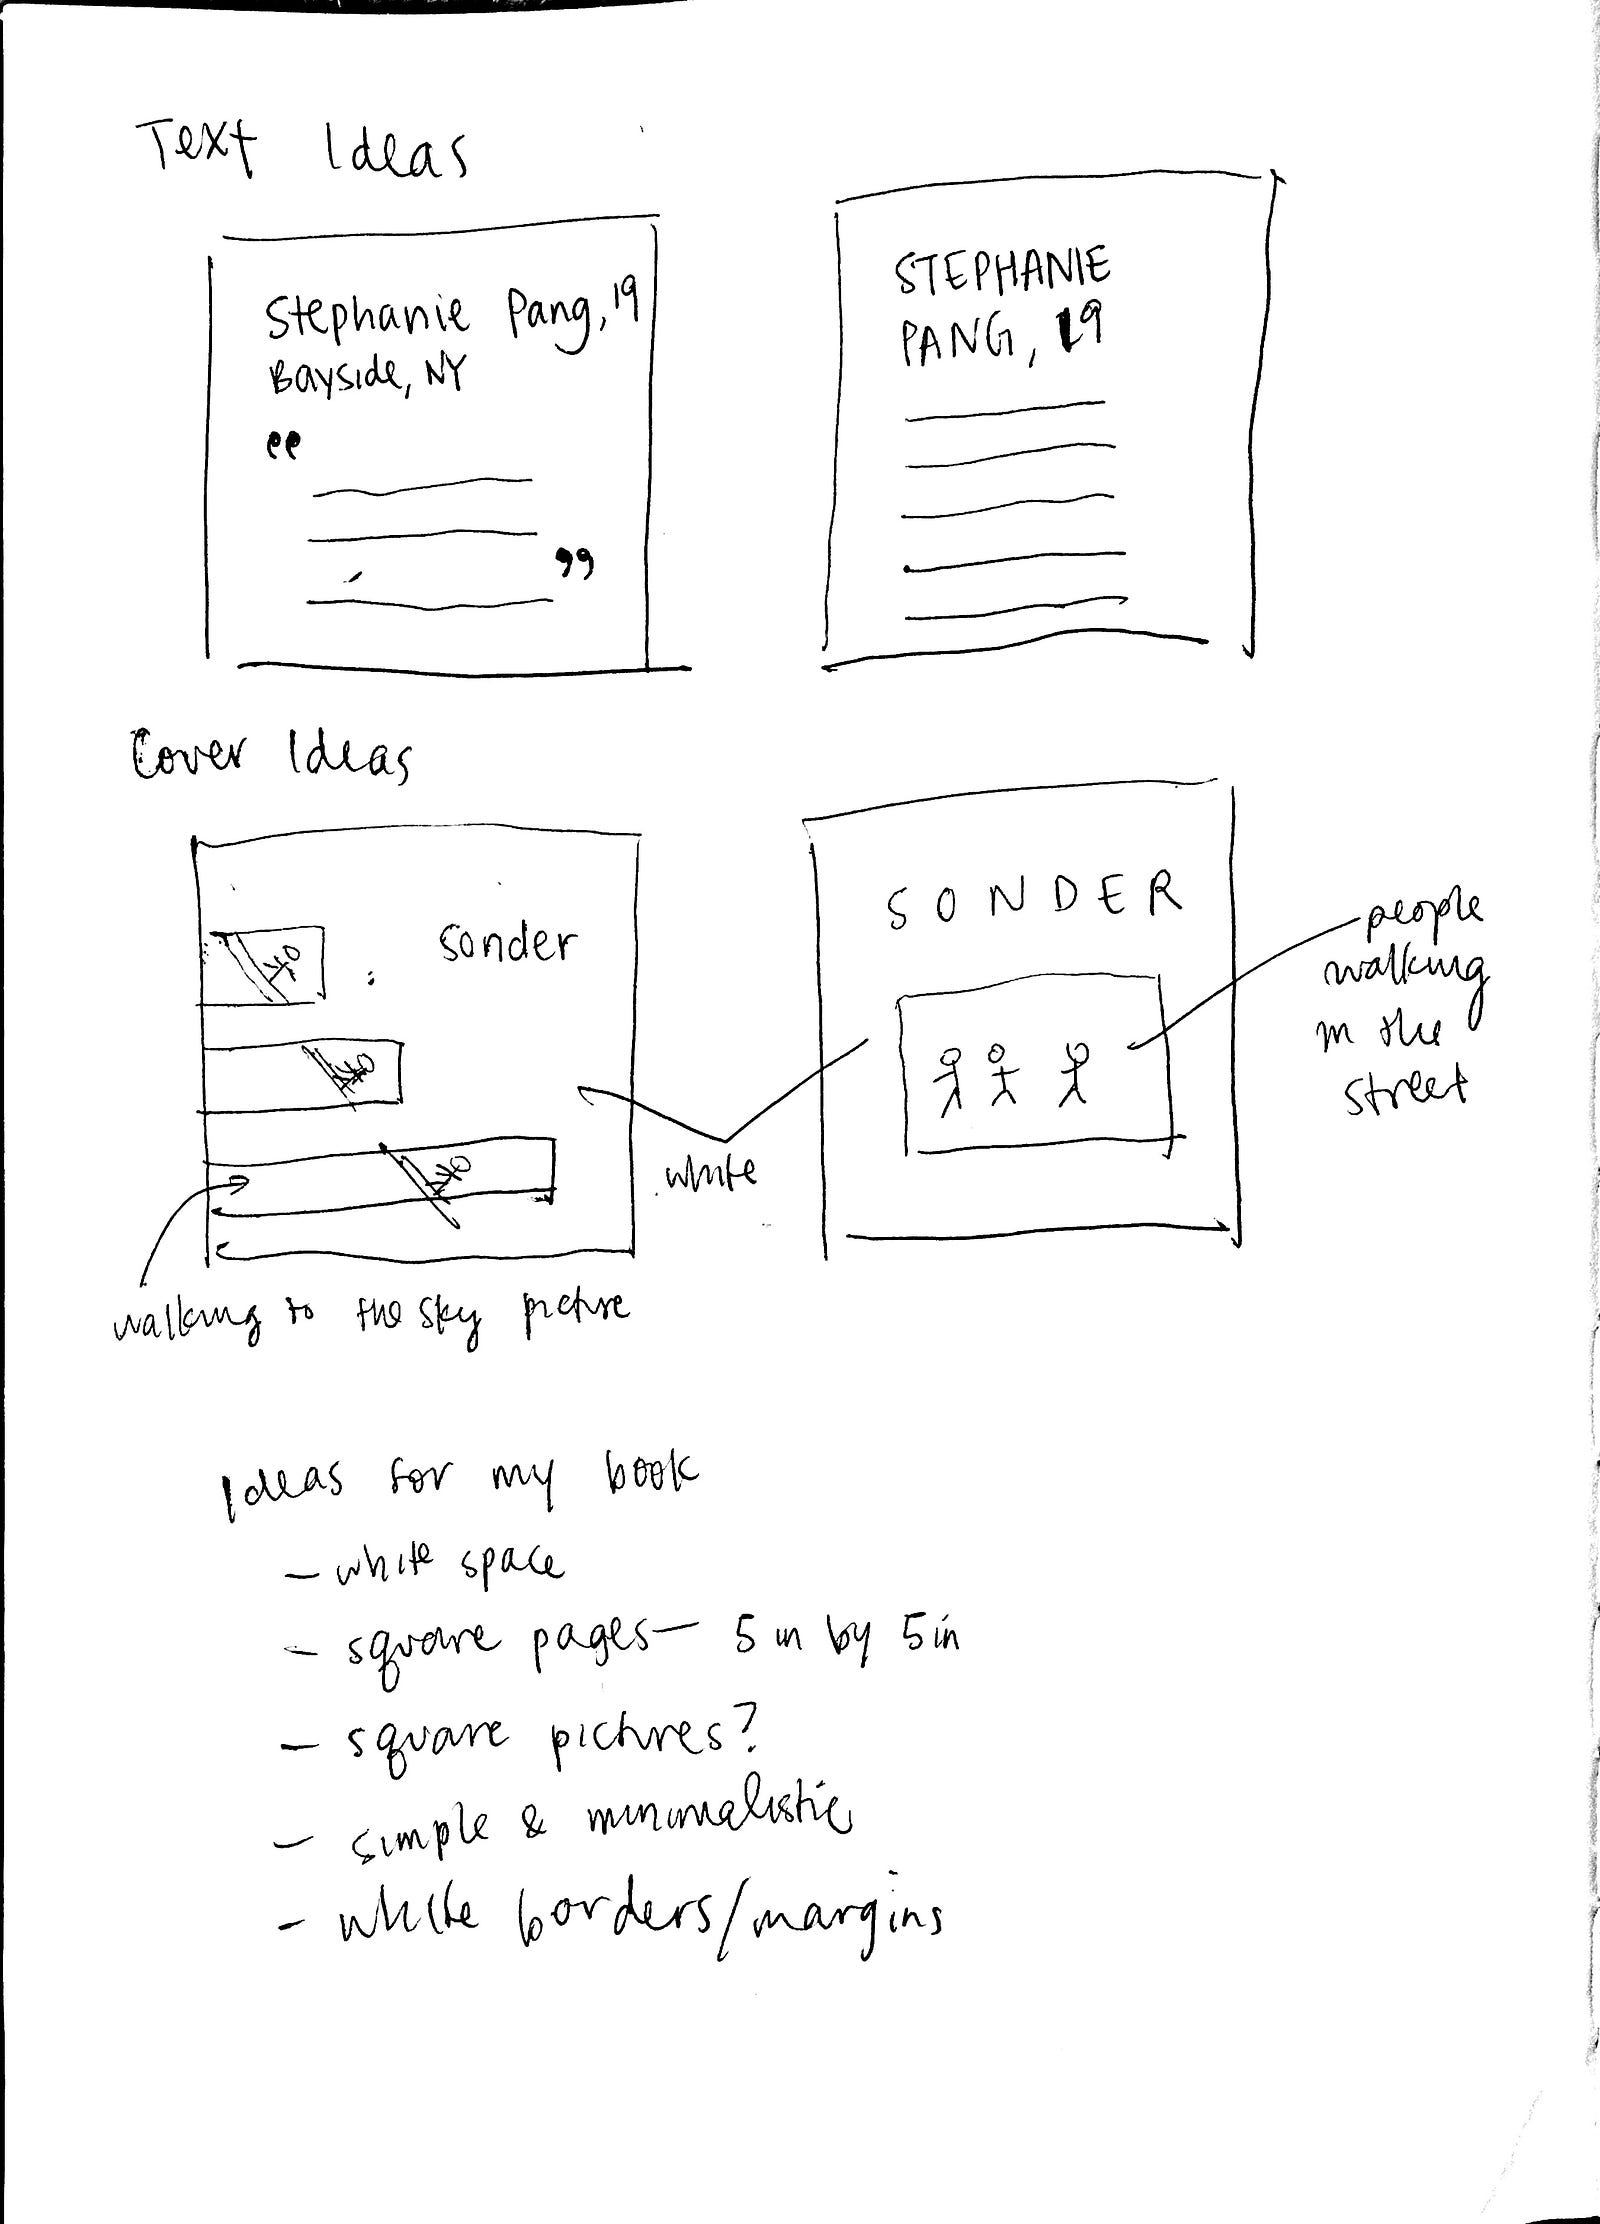 Text Ideas
Stephanie Pang, 19
Bayside, NY
“
”
STEPHANIE
PANG, 19
Cover Ideas
sonder
SONDER
people
walking
in the
street
white
walking to the sky picture
Ideas for my book
- white space
- square pages - 5 in by 5 in
- square pictures?
- simple & minimalistic
- white borders/margins